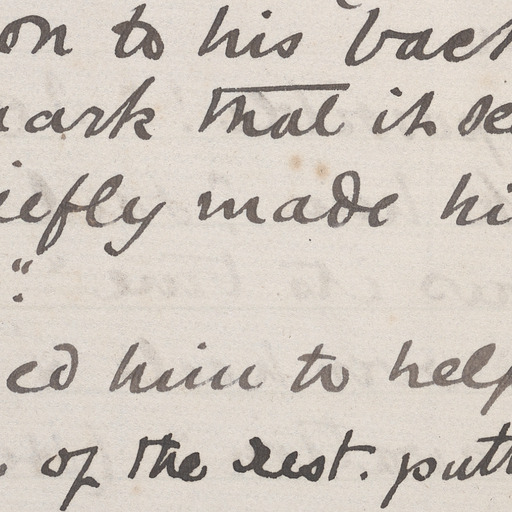 on to his back
ark that it se
iefly made hi
"
ed him to help
of the rest. putt